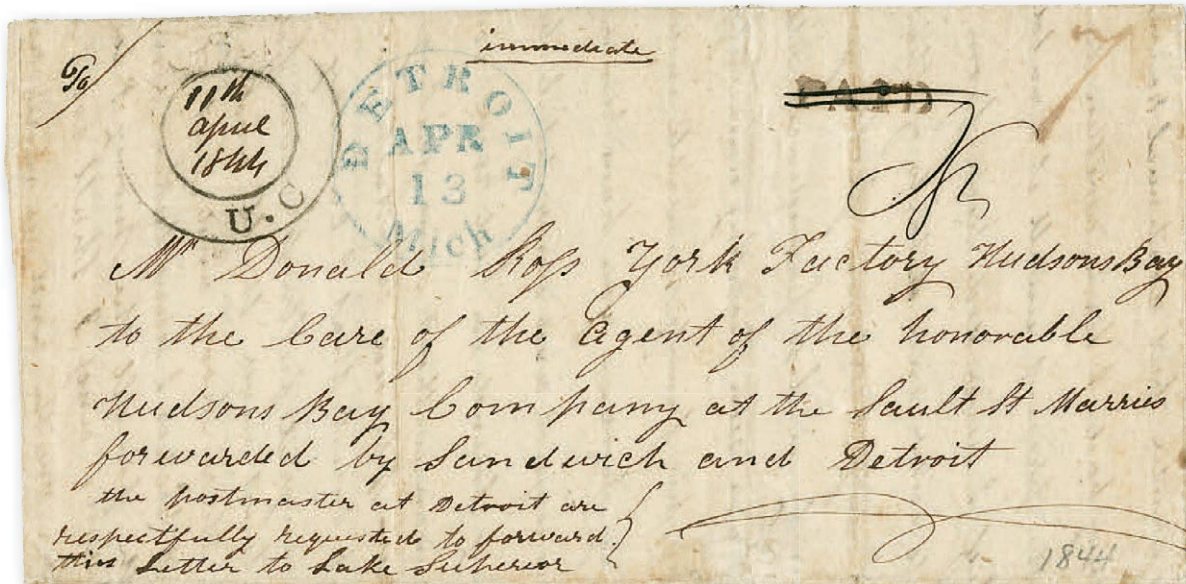 immediate
To
PAID
11th
april
1844
U.C
DETROIT
APR
13
Mich
Mr Donald Ross York Factory Hudsons Bay
to the Care of the Agent of the honorable
Hudsons Bay Company at the Sault St Marries
forwarded by Sandwich and Detroit
the postmaster at Detroit are
respectfully requested to forward
this Letter to Lake Superior
1844